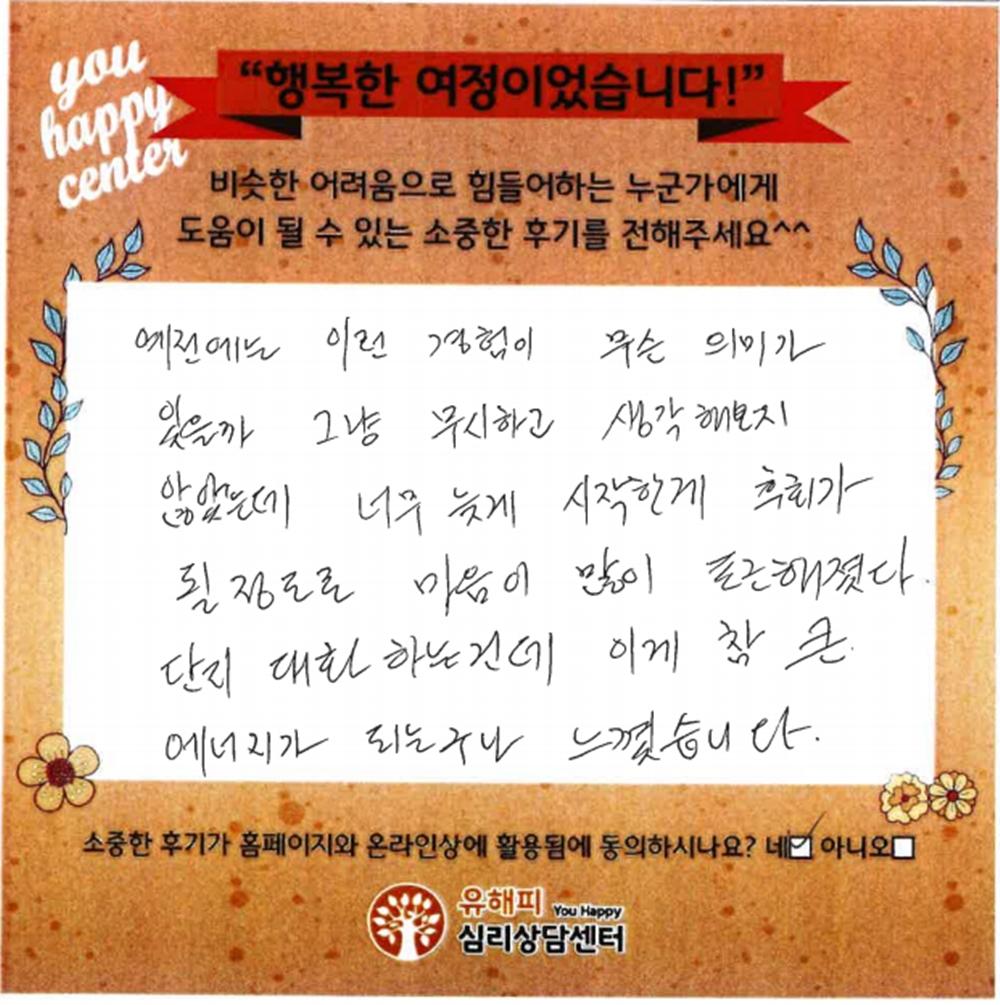 you
happy
center
“행복한 여정이었습니다!”
비슷한 어려움으로 힘들어하는 누군가에게
도움이 될 수 있는 소중한 후기를 전해주세요^^
예전에는 이런 경험이 무슨 의미가
있을까 그냥 무시하고 생각해보지
않았는데 너무 늦게 시작한게 후회가
될 정도로 마음이 많이 포근해졌다.
단지 대화 하는건데 이게 참 큰
에너지가 되는구나 느꼈습니다.
소중한 후기가 홈페이지와 온라인상에 활용됨에 동의하시나요? 네☑ 아니오☐
유해피 You Happy
심리상담센터